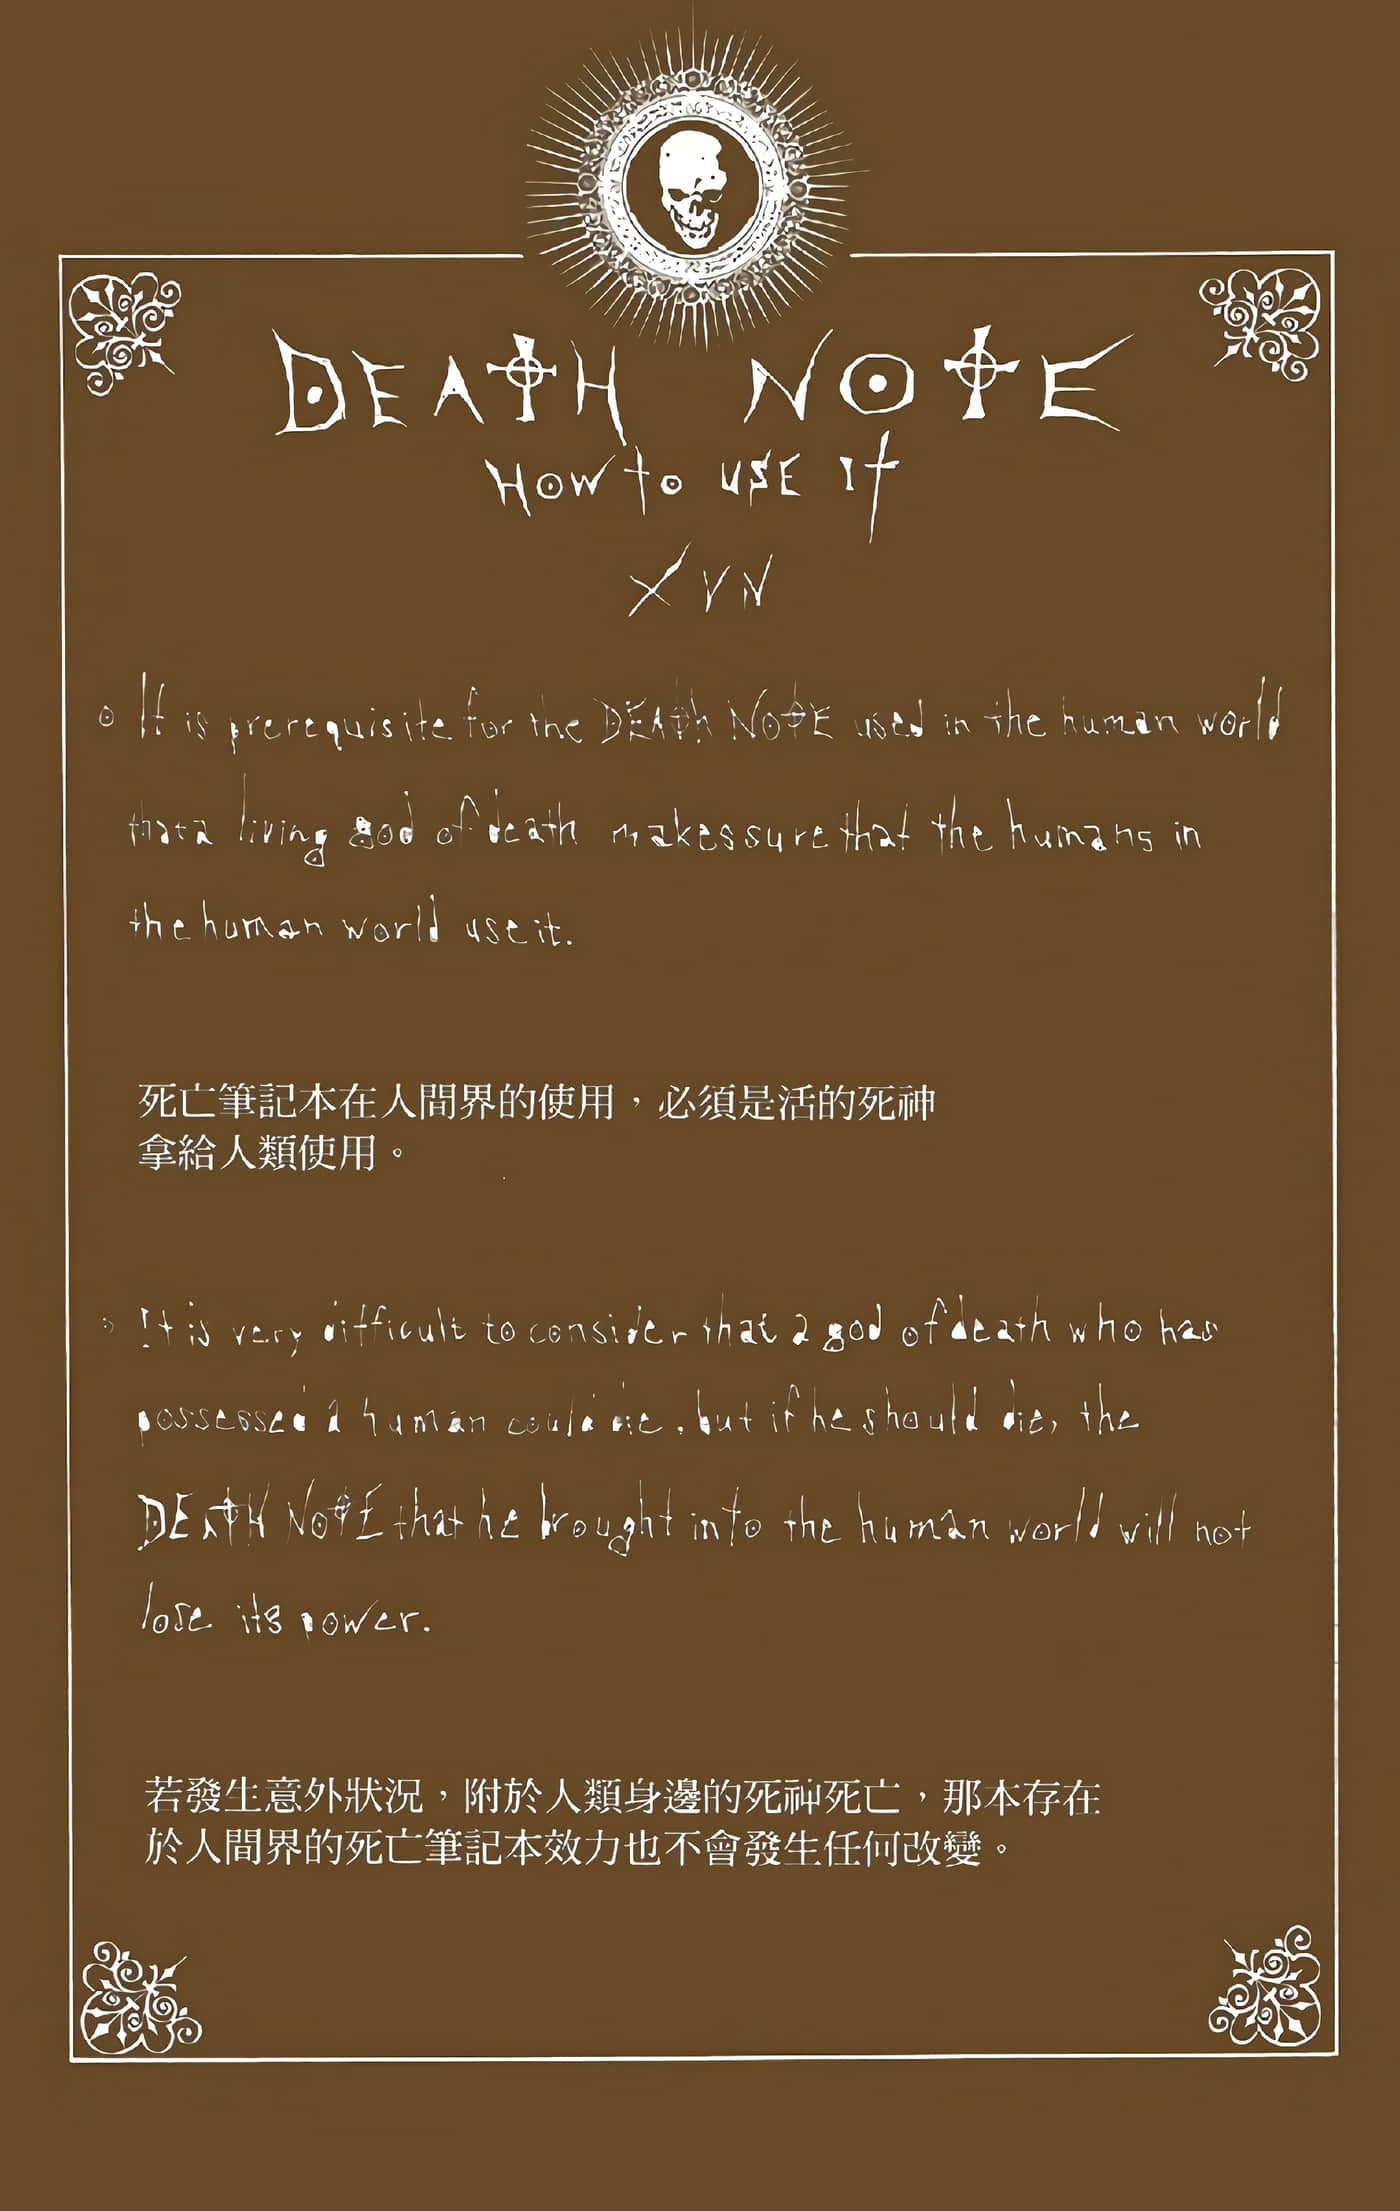 DEATH NOTE
How to use it
XVII
It is prerequisite for the DEATH NOTE used in the human world
that a living god of death makes sure that the humans in
the human world use it.
死亡筆記本在人間界的使用，必須是活的死神
拿給人類使用。
It is very difficult to consider that a god of death who has
possessed a human could die, but if he should die, the
DEATH NOTE that he brought into the human world will not
lose its power.
若發生意外狀況，附於人類身邊的死神死亡，那本存在
於人間界的死亡筆記本效力也不會發生任何改變。